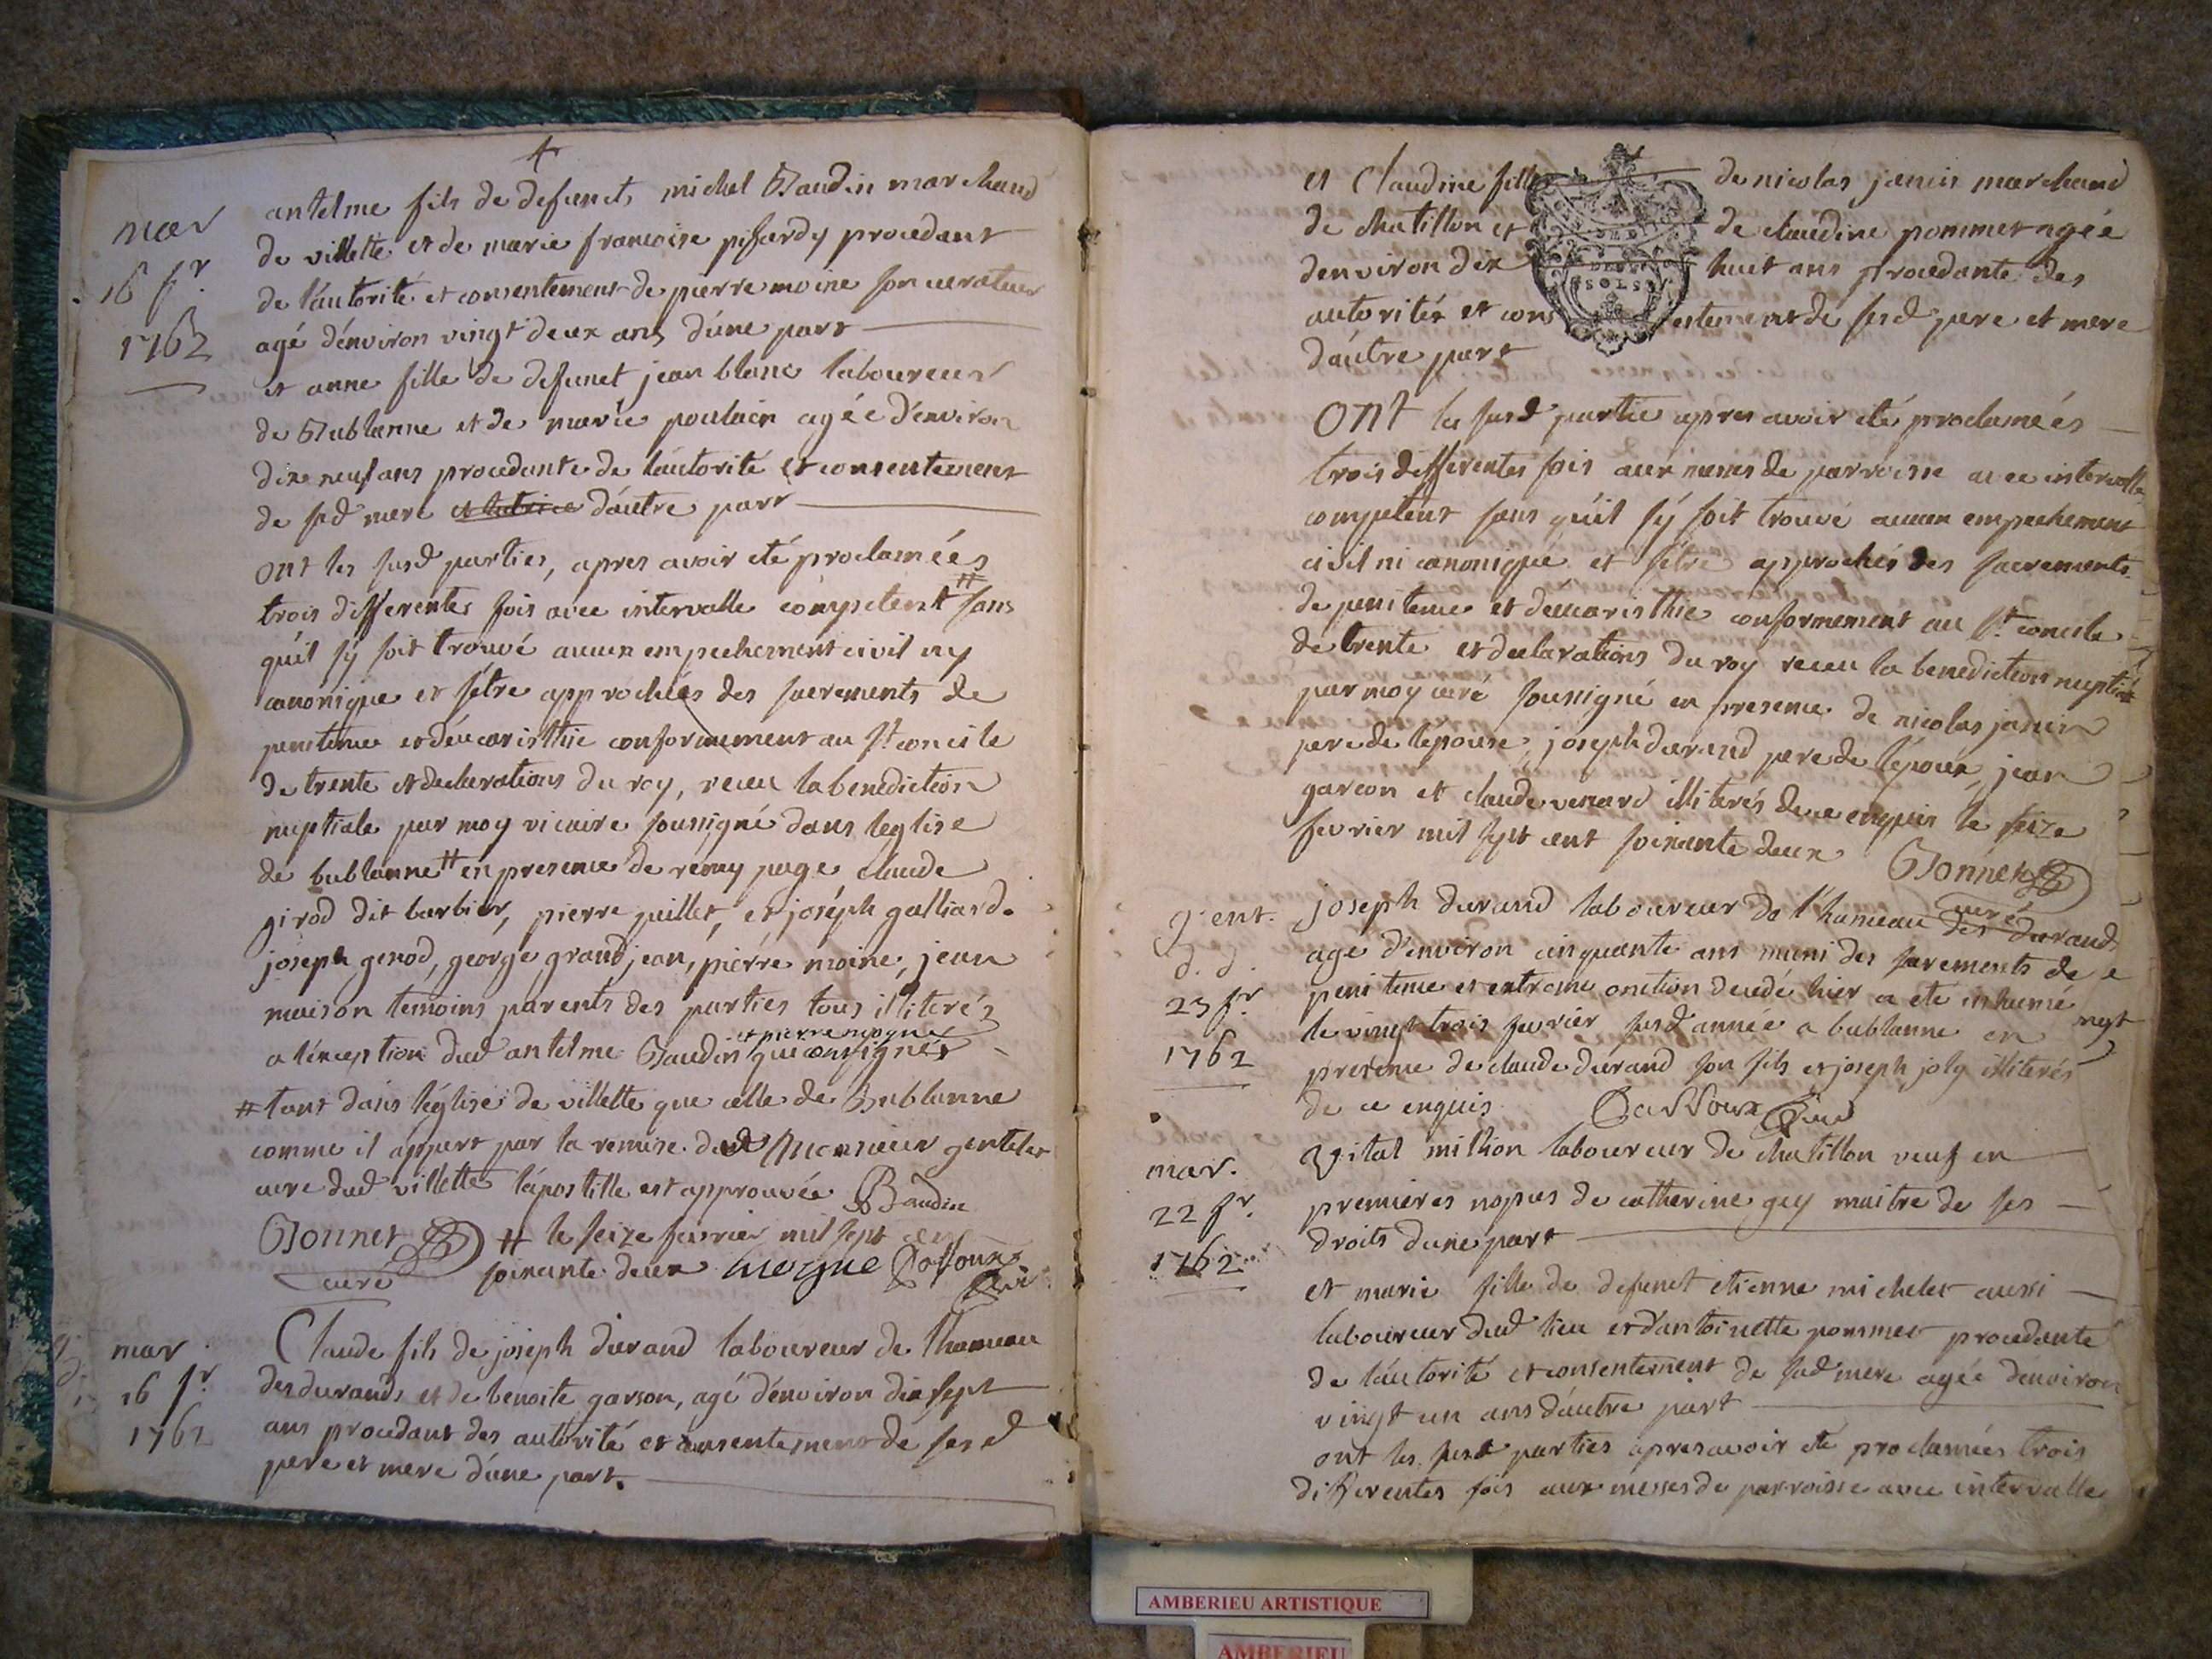 mar
16 fr.
1762
antelme fils de defunct michel Baudin marchand
de villette et de marie francoise pifardy procedant
de l'autorité et consentement de pierre moine son curateur
agé d'environ vingt deux ans d'une part
et anne fille de defunct jean blanc laboureur
de Bublanne et de marie poulain agée d'environ
dix neuf ans procedante de l'autorité et consentement
de sad mere d'autre part
ont les susd parties, apres avoir été proclamées
trois differentes fois avec intervalle competent # sans
qu'il s'y soit trouvé aucun empechement civil ny
canonique et s'être approchées des sacrements de
penitence et d'eucaristhie conformement au st concile
de trente et declarations du roy, receu la benediction
nuptiale par moy vicaire soussigné dans leglise
de bublanne # en presence de remy page claude
girod dit barbier, pierre juillet, et joseph galliard.
joseph genod, george grandjean, pierre moine, jean
maison temoins parents des parties tous illiterés
et pierre mogne
a l'éxception dud antelme Baudin qui ont signés
# tant dans l'église de villette que celle de Bublanne
comme il appert par la remise dud Monsieur
curé dud villette l'apostille est approuvée Baudin
Bonnet curé # le seize fevrier mil sept cent
soixante deux mogne
mar
16 fr.
1762
Claude fils de joseph durand laboureur de l'hameau
des durands et de benoite garson, agé d'environ dix sept
ans procedant des autorité et consentement de ses d
pere et mere d'une part.
et Claudine fille de nicolas janin marchand
de chatillon et de claudine pommet agée
d'environ dix huit ans procedante des
autorités et consentement de sesd pere et mere
d'autre part
DEUX
SOLS
ont les susd partie apres avoir été proclameés
trois differentes fois aux messes de parroisse avec intervalle
competent sans qu'il s'y soit trouvé aucun empechement
civil ni canonique et s'être approchés des sacrements
de penitence et deucaristhie conformement au st concile
de trente et declarations du roy receu la benediction nuptiale
par moy curé soussigné en presence de nicolas janin
pere de l'epouse, joseph durand pere de l'époux, jean
garcon et claude illiterés de ce enquis le seize
fevrier mil sept cent soixante deux Bonnet
curé
23 fr.
1762
joseph durand laboureur de l'hameau des durands
agé d'environ cinquante ans muni des sacrements de
penitence et extreme onction decedé hier a été inhumé
le vingt trois fevrier susd année a bublanne en
presence de claude durand son fils et joseph joly illiterés
de ce enquis
mar.
22 fr.
1762
vital million laboureur de chatillon veuf en
premieres nopces de catherine guy maitre de ses
droits d'une part
et marie fille de defunct etienne michelet aussi
laboureur dud lieu et d'antoinette pommet procedante
de l'autorité et consentement de sad mere agée d'environ
vingt un ans d'autre part
ont les susd parties apres avoir été proclamées trois
differentes fois aux messes de parroisse avec intervalle
AMBERIEU ARTISTIQUE
AMBERIEU